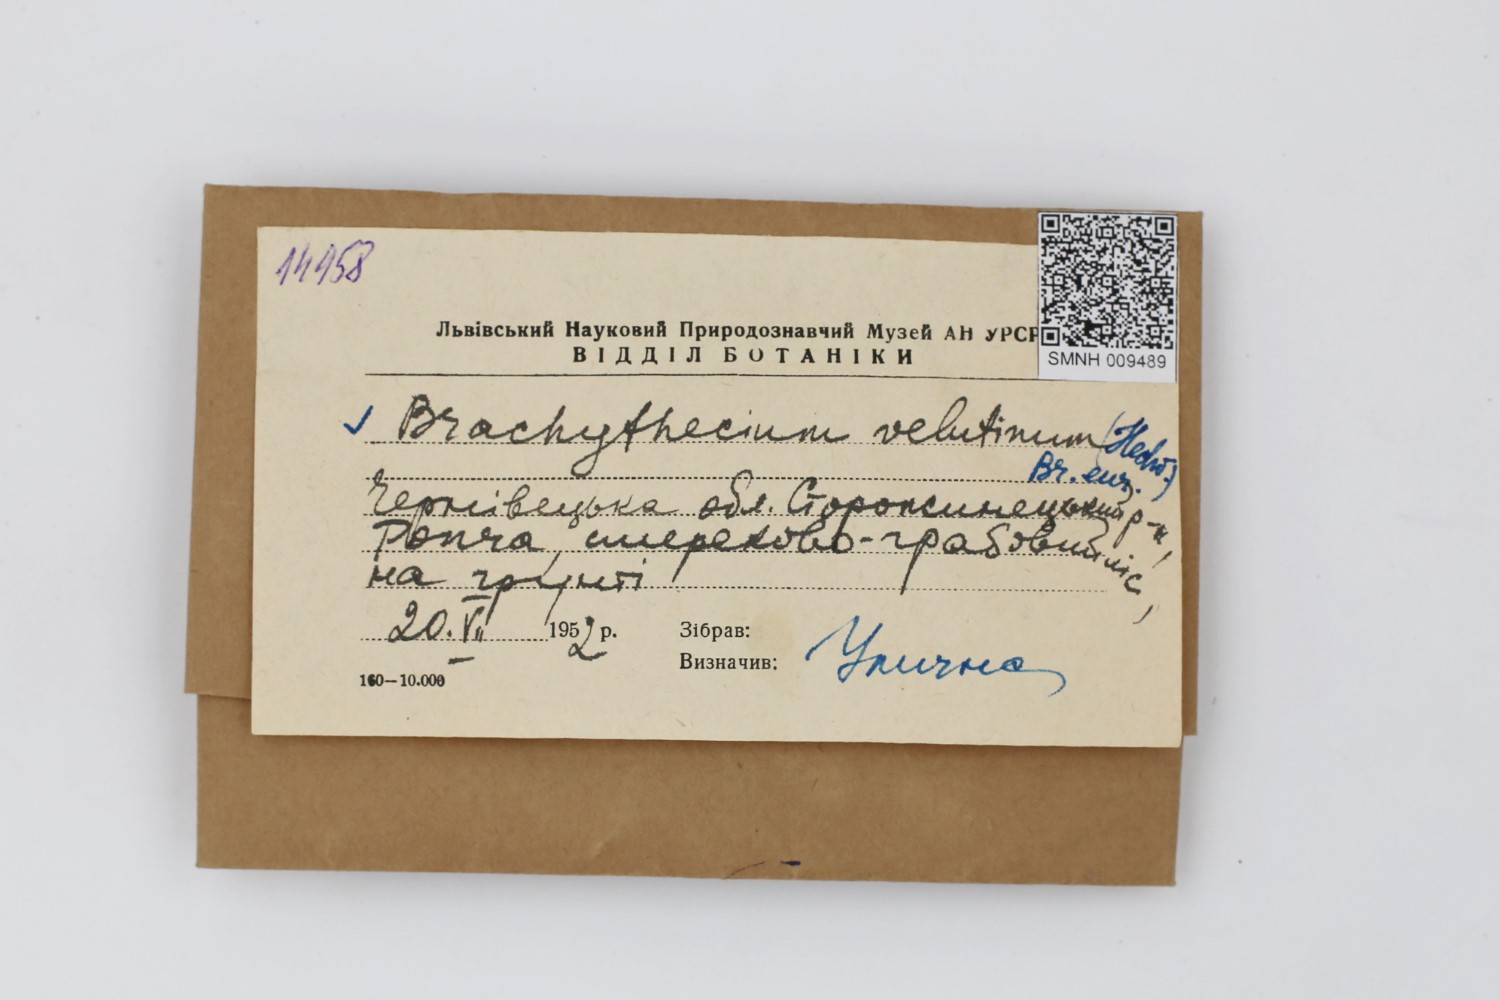 14958
Львівський Науковий Природознавчий Музей АН УРСР
ВІДДІЛ БОТАНІКИ
SMNH 009489
✓ Brachythecium velutinum (Hedw.)
Br. eur.
Чернівецька обл. Сторожинецький р-н,
Ропча, смереково-грабовий ліс,
на ґрунті
20.VII 1952 р.
Зібрав:
Визначив: Улична
160—10.000